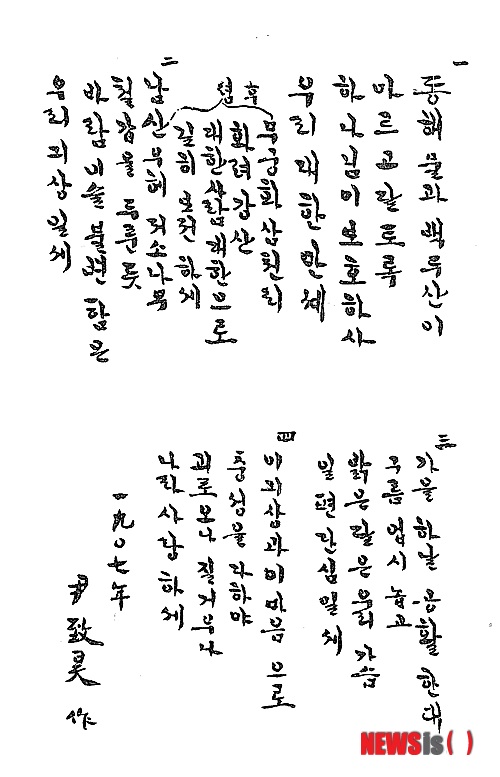 一
동해물과백두산이
마르고달토록
하나님이보호하사
우리대한만세
후렴
무궁화삼천리
화려강산
대한사람대한으로
길히보전하세
二
남산우헤저소나무
철갑을두른듯
바람이슬불변함은
우리긔상일세
三
가을하날공활한대
구름업시놉고
밝은달은우리가슴
일편단심일세
四
이긔상과이마음으로
충성을다하야
괴로오나질거우나
나라사랑하세
一九〇七年
尹致昊 作
NEWSis( )